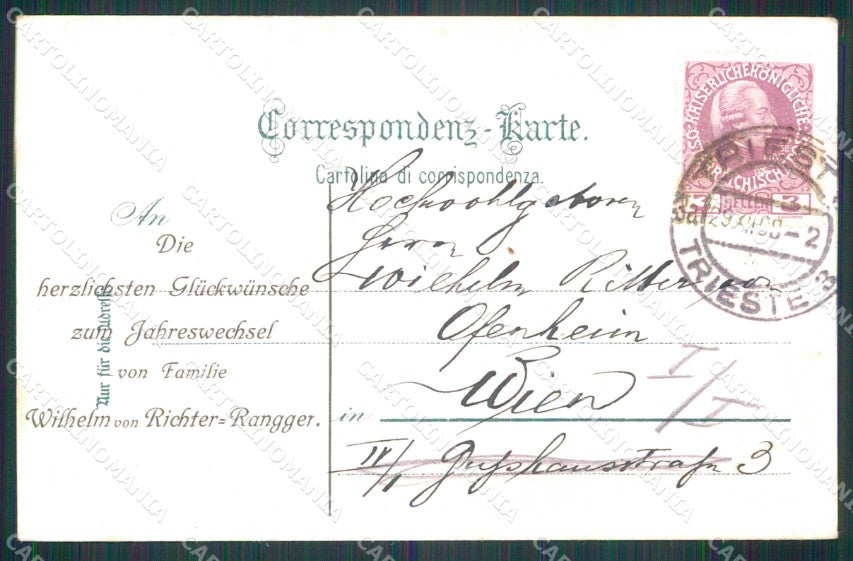 Correspondenz-Karte.
Cartolina di corrispondenza.
An
Die
herzlichsten Glückwünsche
zum Jahreswechsel
von Familie
Wilhelm von Richter-Rangger.
Nur für die Adresse
Hochwohlgeboren
Herrn
Wilhelm Ritter von
Ofenheim
in Wien
I/I
IV/1 Gußhausstraße 3
KAISERLICHE KÖNIGLICHE
3 3
TRIEST 3
TRIESTE 3
CARTOLINOMANIA